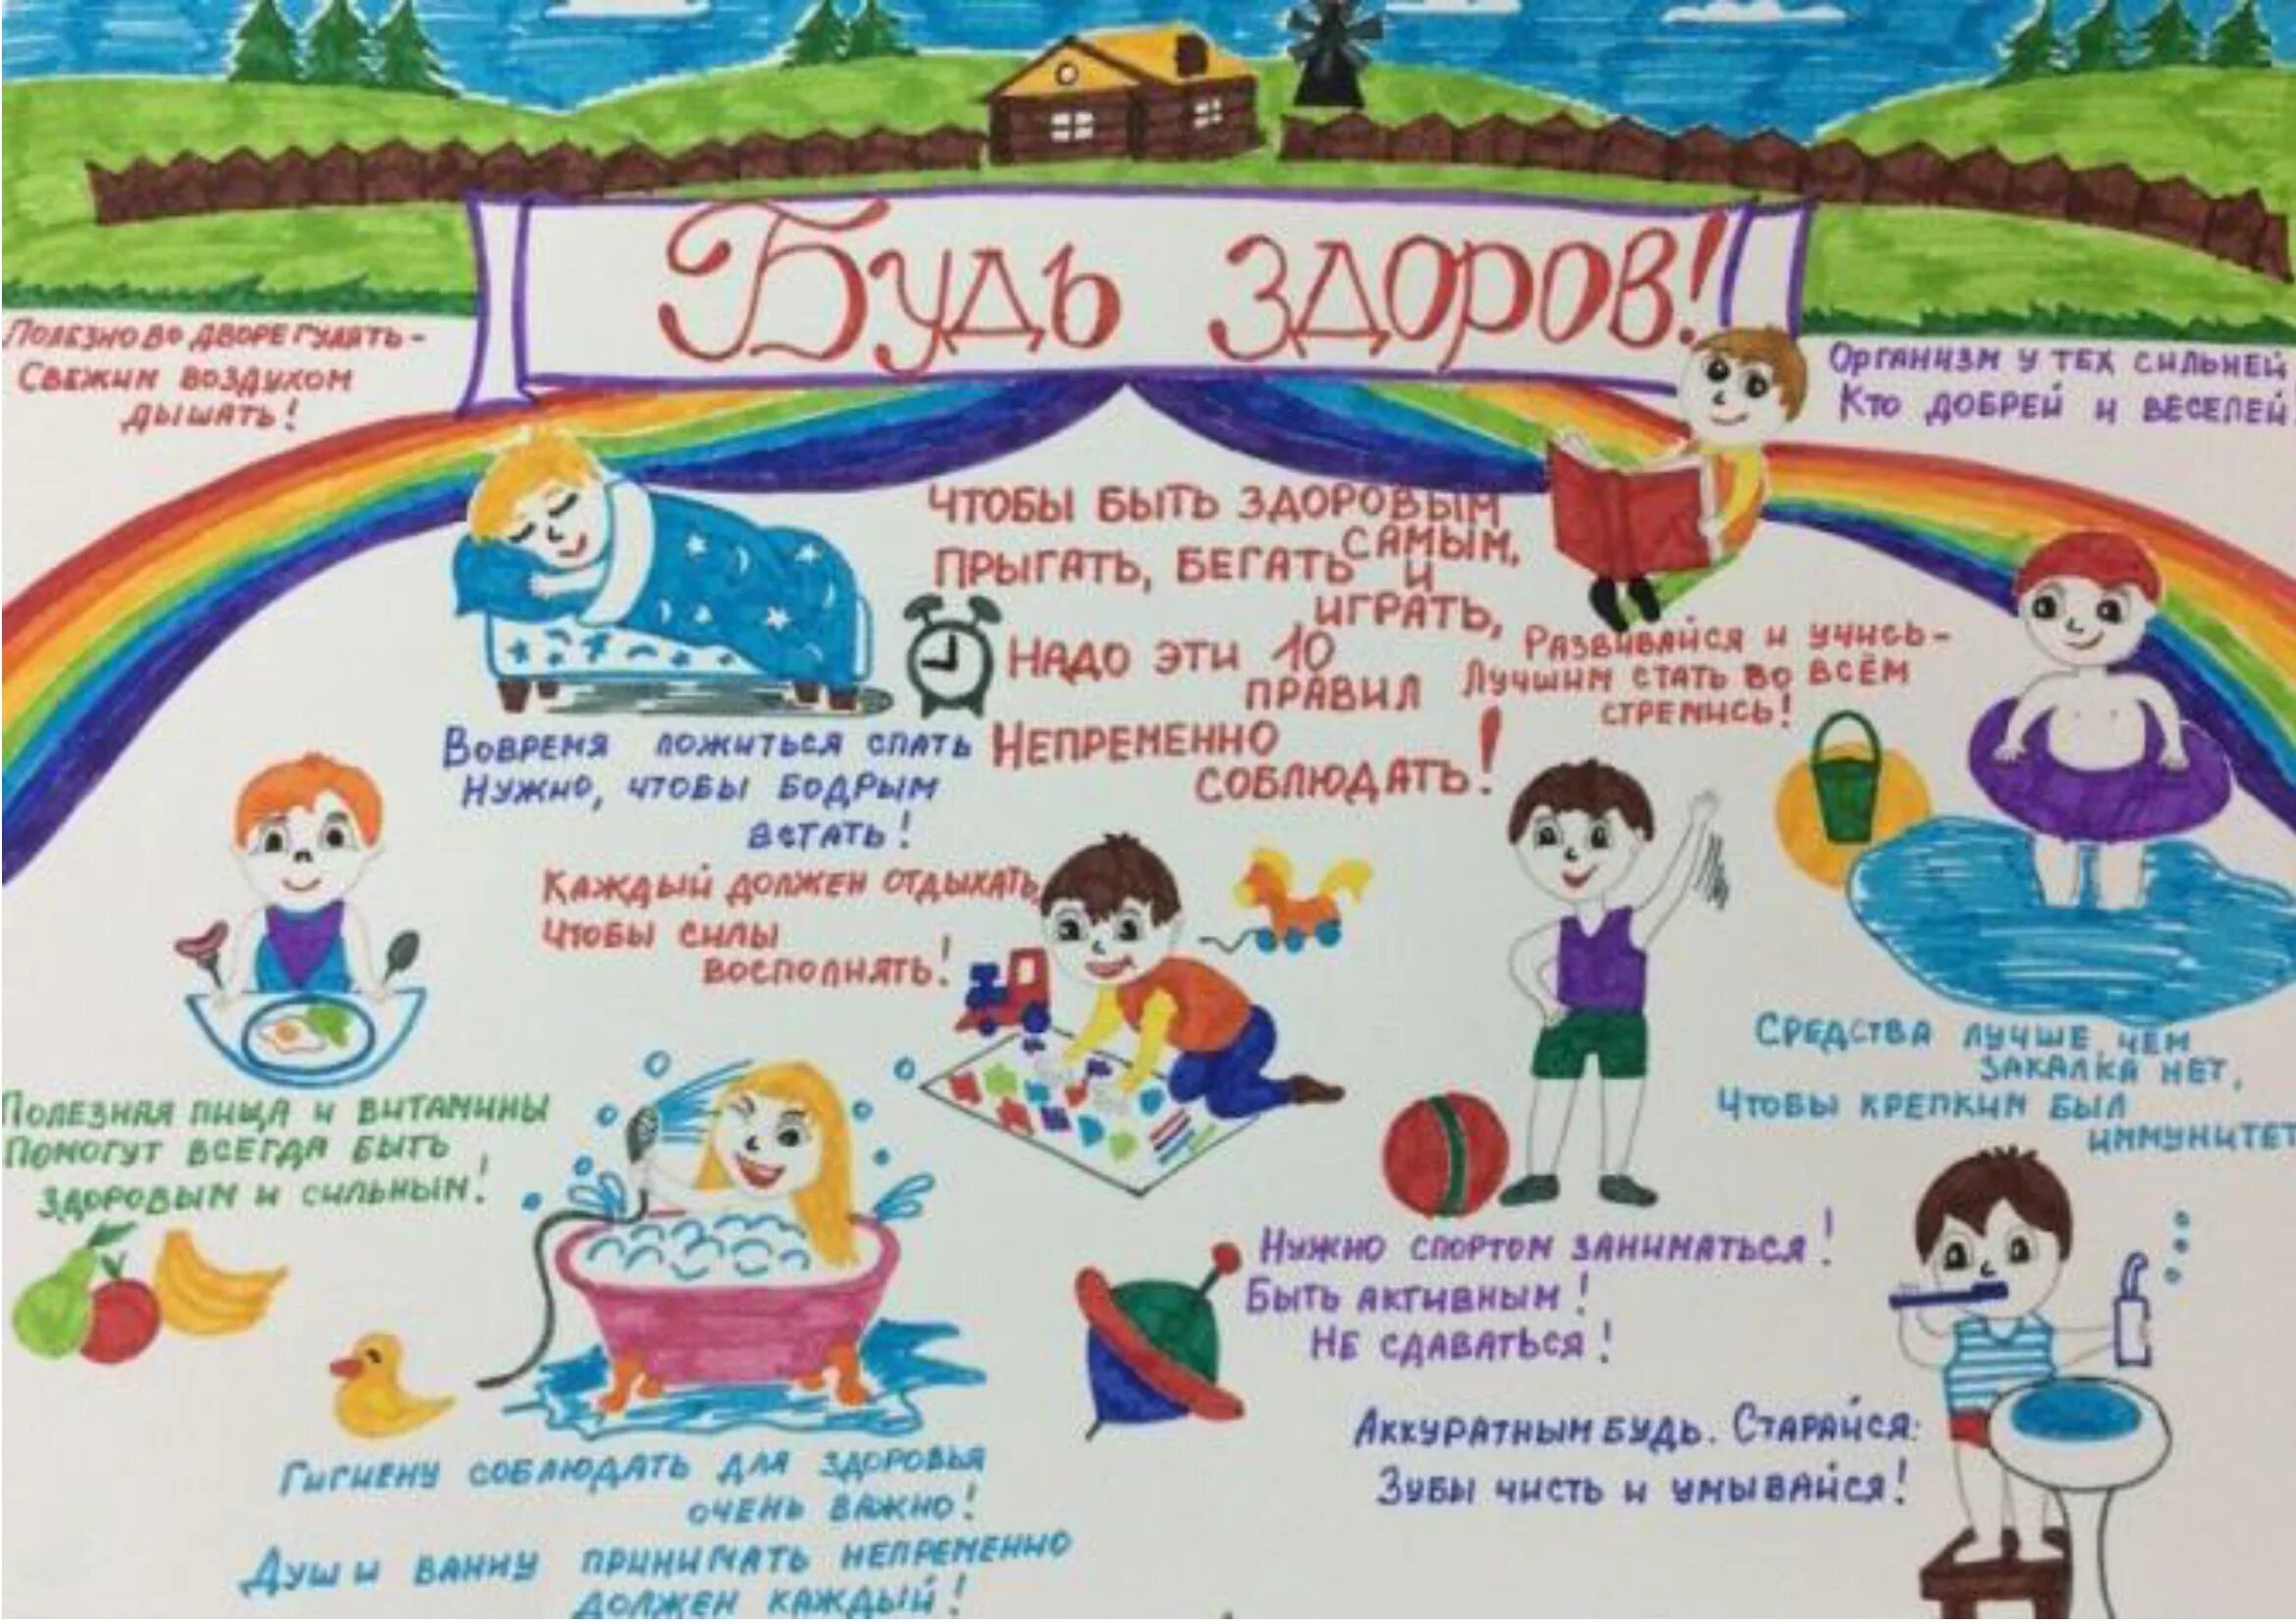 Будь здоров!
Полезно во дворе гулять -
Свежим воздухом
дышать!
Организм у тех сильней
Кто добрей и веселей
Чтобы быть здоровым
самым,
Прыгать, бегать и
играть,
Надо эти 10
правил
Непременно
соблюдать!
Развивайся и учись -
Лучшим стать во всём
стремись!
Вовремя ложиться спать
Нужно, чтобы бодрым
встать!
Каждый должен отдыхать,
Чтобы силы
восполнять!
Средства лучше, чем
закалка нет,
Чтобы крепким был
иммунитет
Полезная пища и витамины
Помогут всегда быть
здоровым и сильным!
Нужно спортом заниматься!
Быть активным!
Не сдаваться!
Аккуратным будь. Старайся:
Зубы чисть и умывайся!
Гигиену соблюдать для здоровья
очень важно!
Душ и ванну принимать непременно
должен каждый!